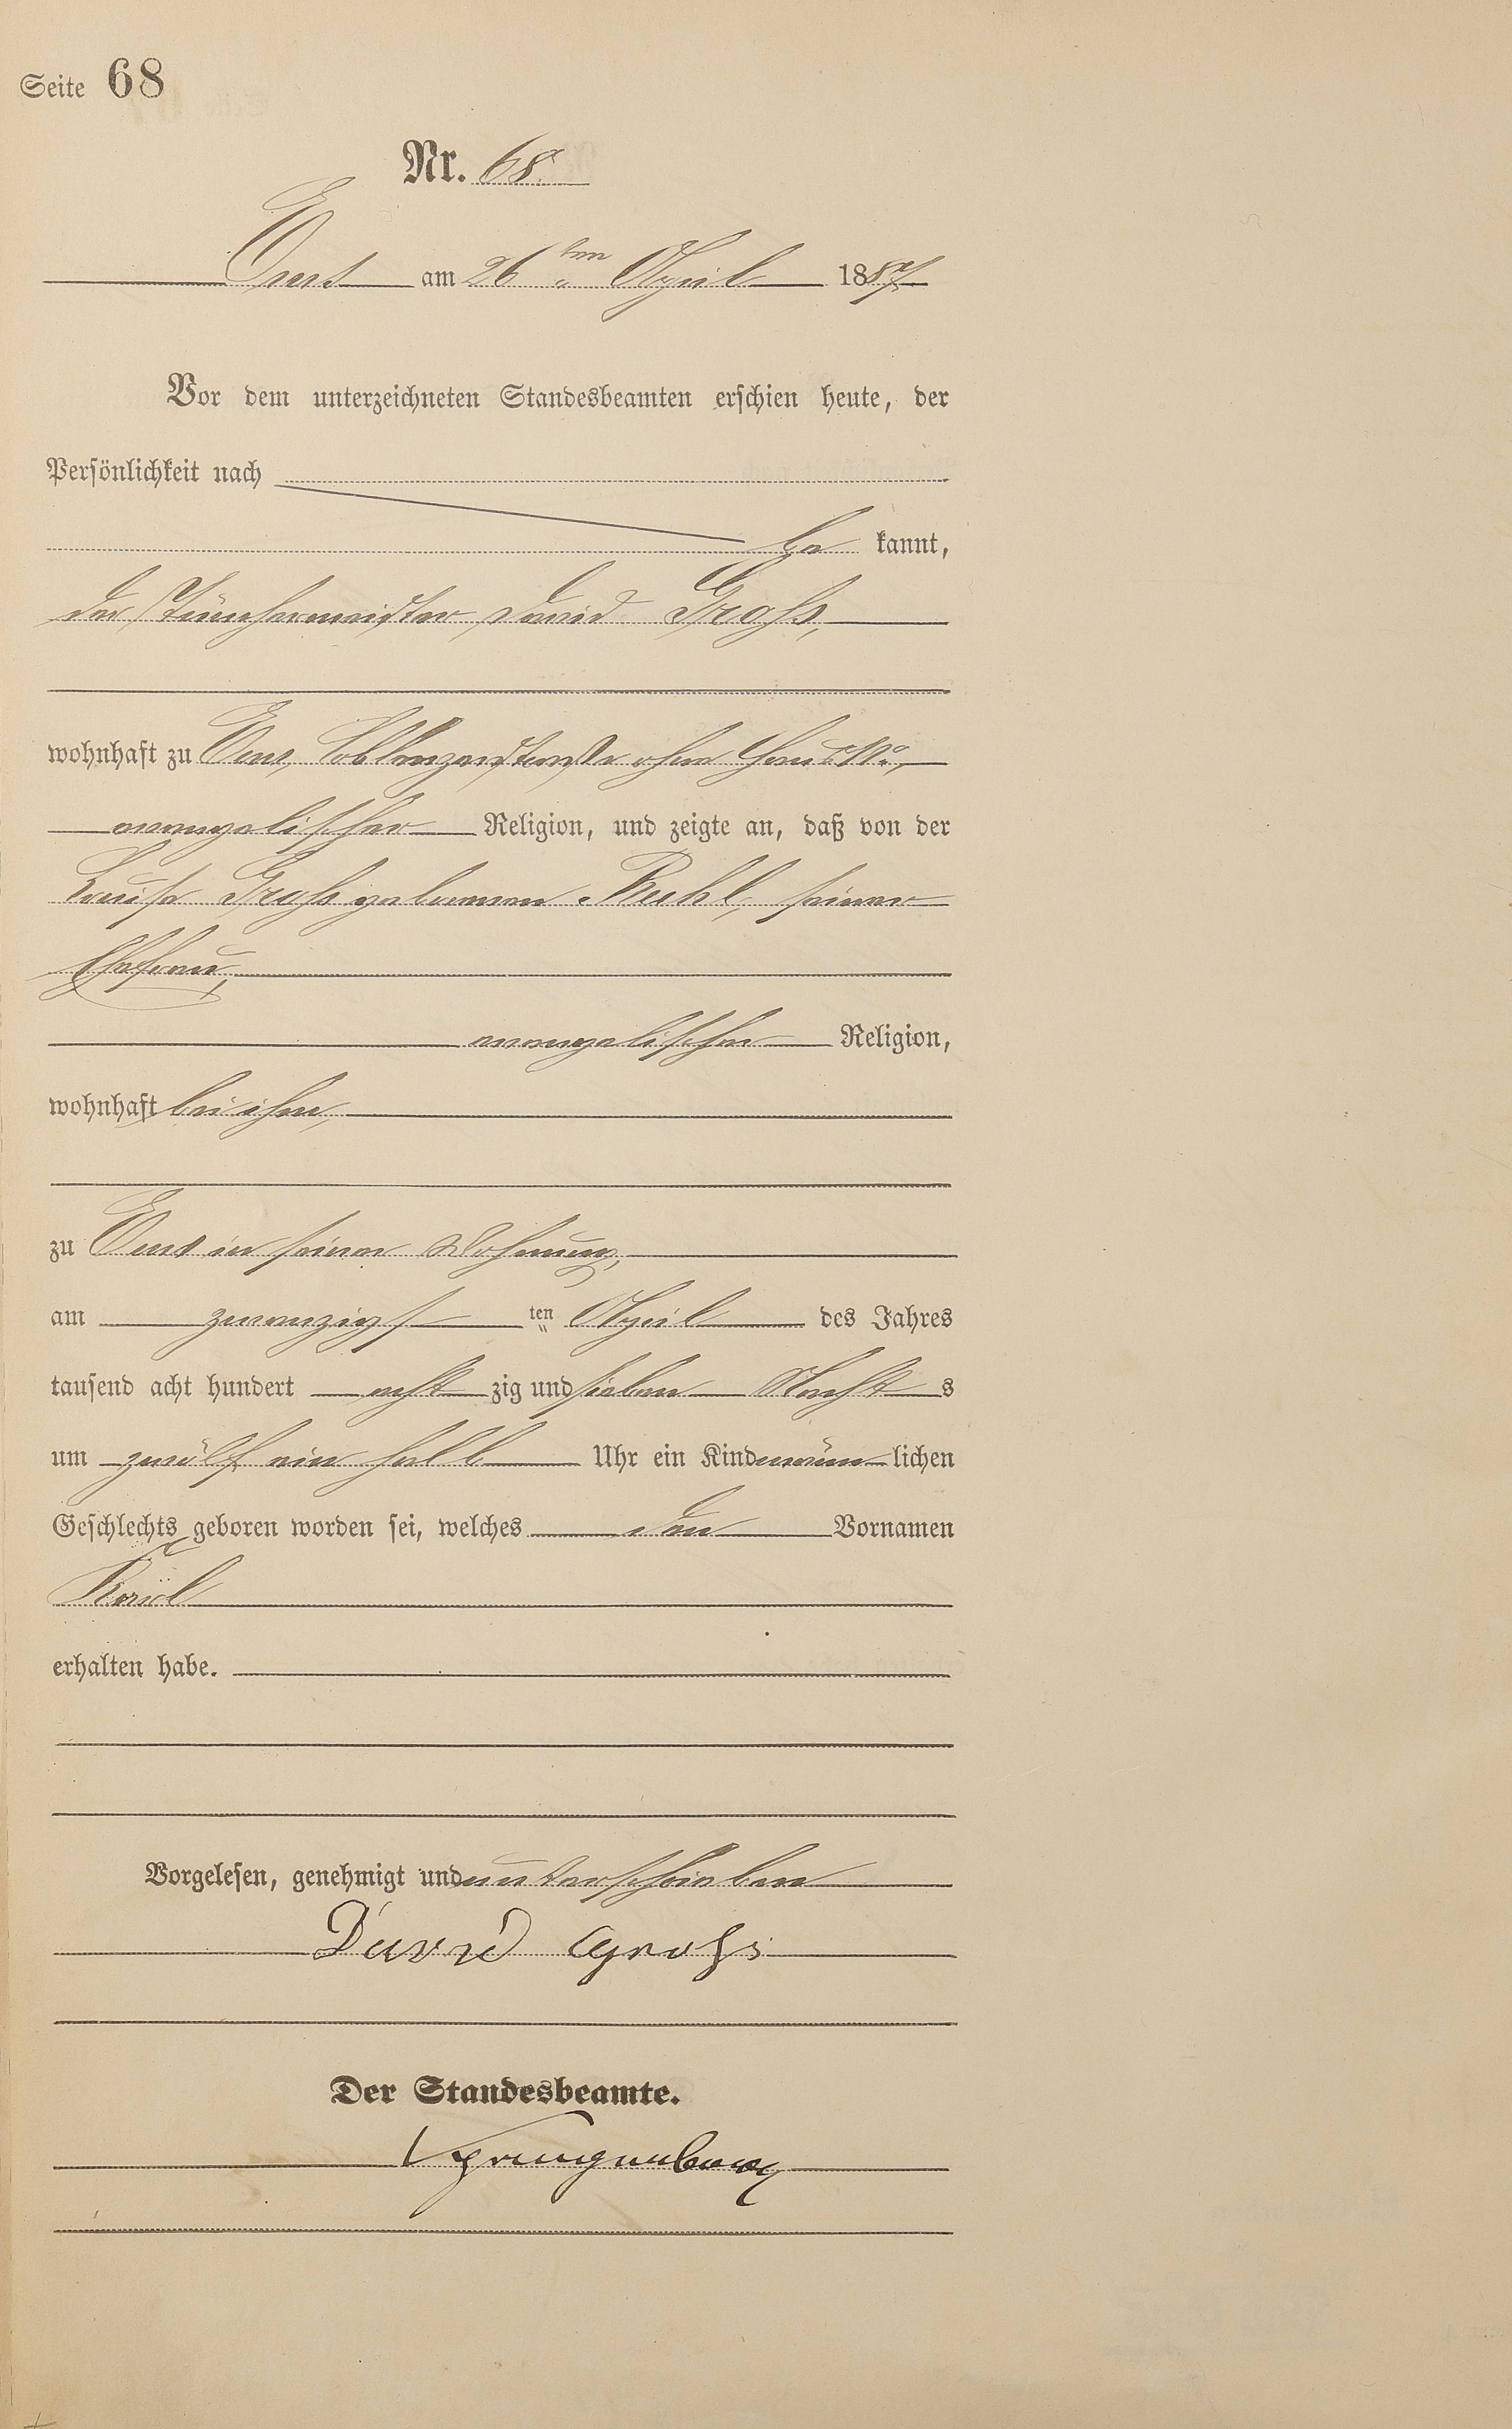 Seite 68
Nr. 68.
Ems am 26ten April 1887.
Vor dem unterzeichneten Standesbeamten erschien heute, der
Persönlichkeit nach
be kannt,
der Tünchermeister David Groß,
wohnhaft zu Ems, Coblenzerstraße ohne Haus No,
evangelischer Religion, und zeigte an, daß von der
Louise Groß geborenen Ruhl, seiner
Ehefrau,
evangelischer Religion,
wohnhaft bei ihm,
zu Ems in seiner Wohnung,
am zwanzigs ten April des Jahres
tausend acht hundert acht zig und sieben Nacht s
um zwölf ein halb Uhr ein Kind männ lichen
Geschlechts geboren worden sei, welches den Vornamen
Karl
erhalten habe.
Vorgelesen, genehmigt und unterschrieben
David Groß
Der Standesbeamte.